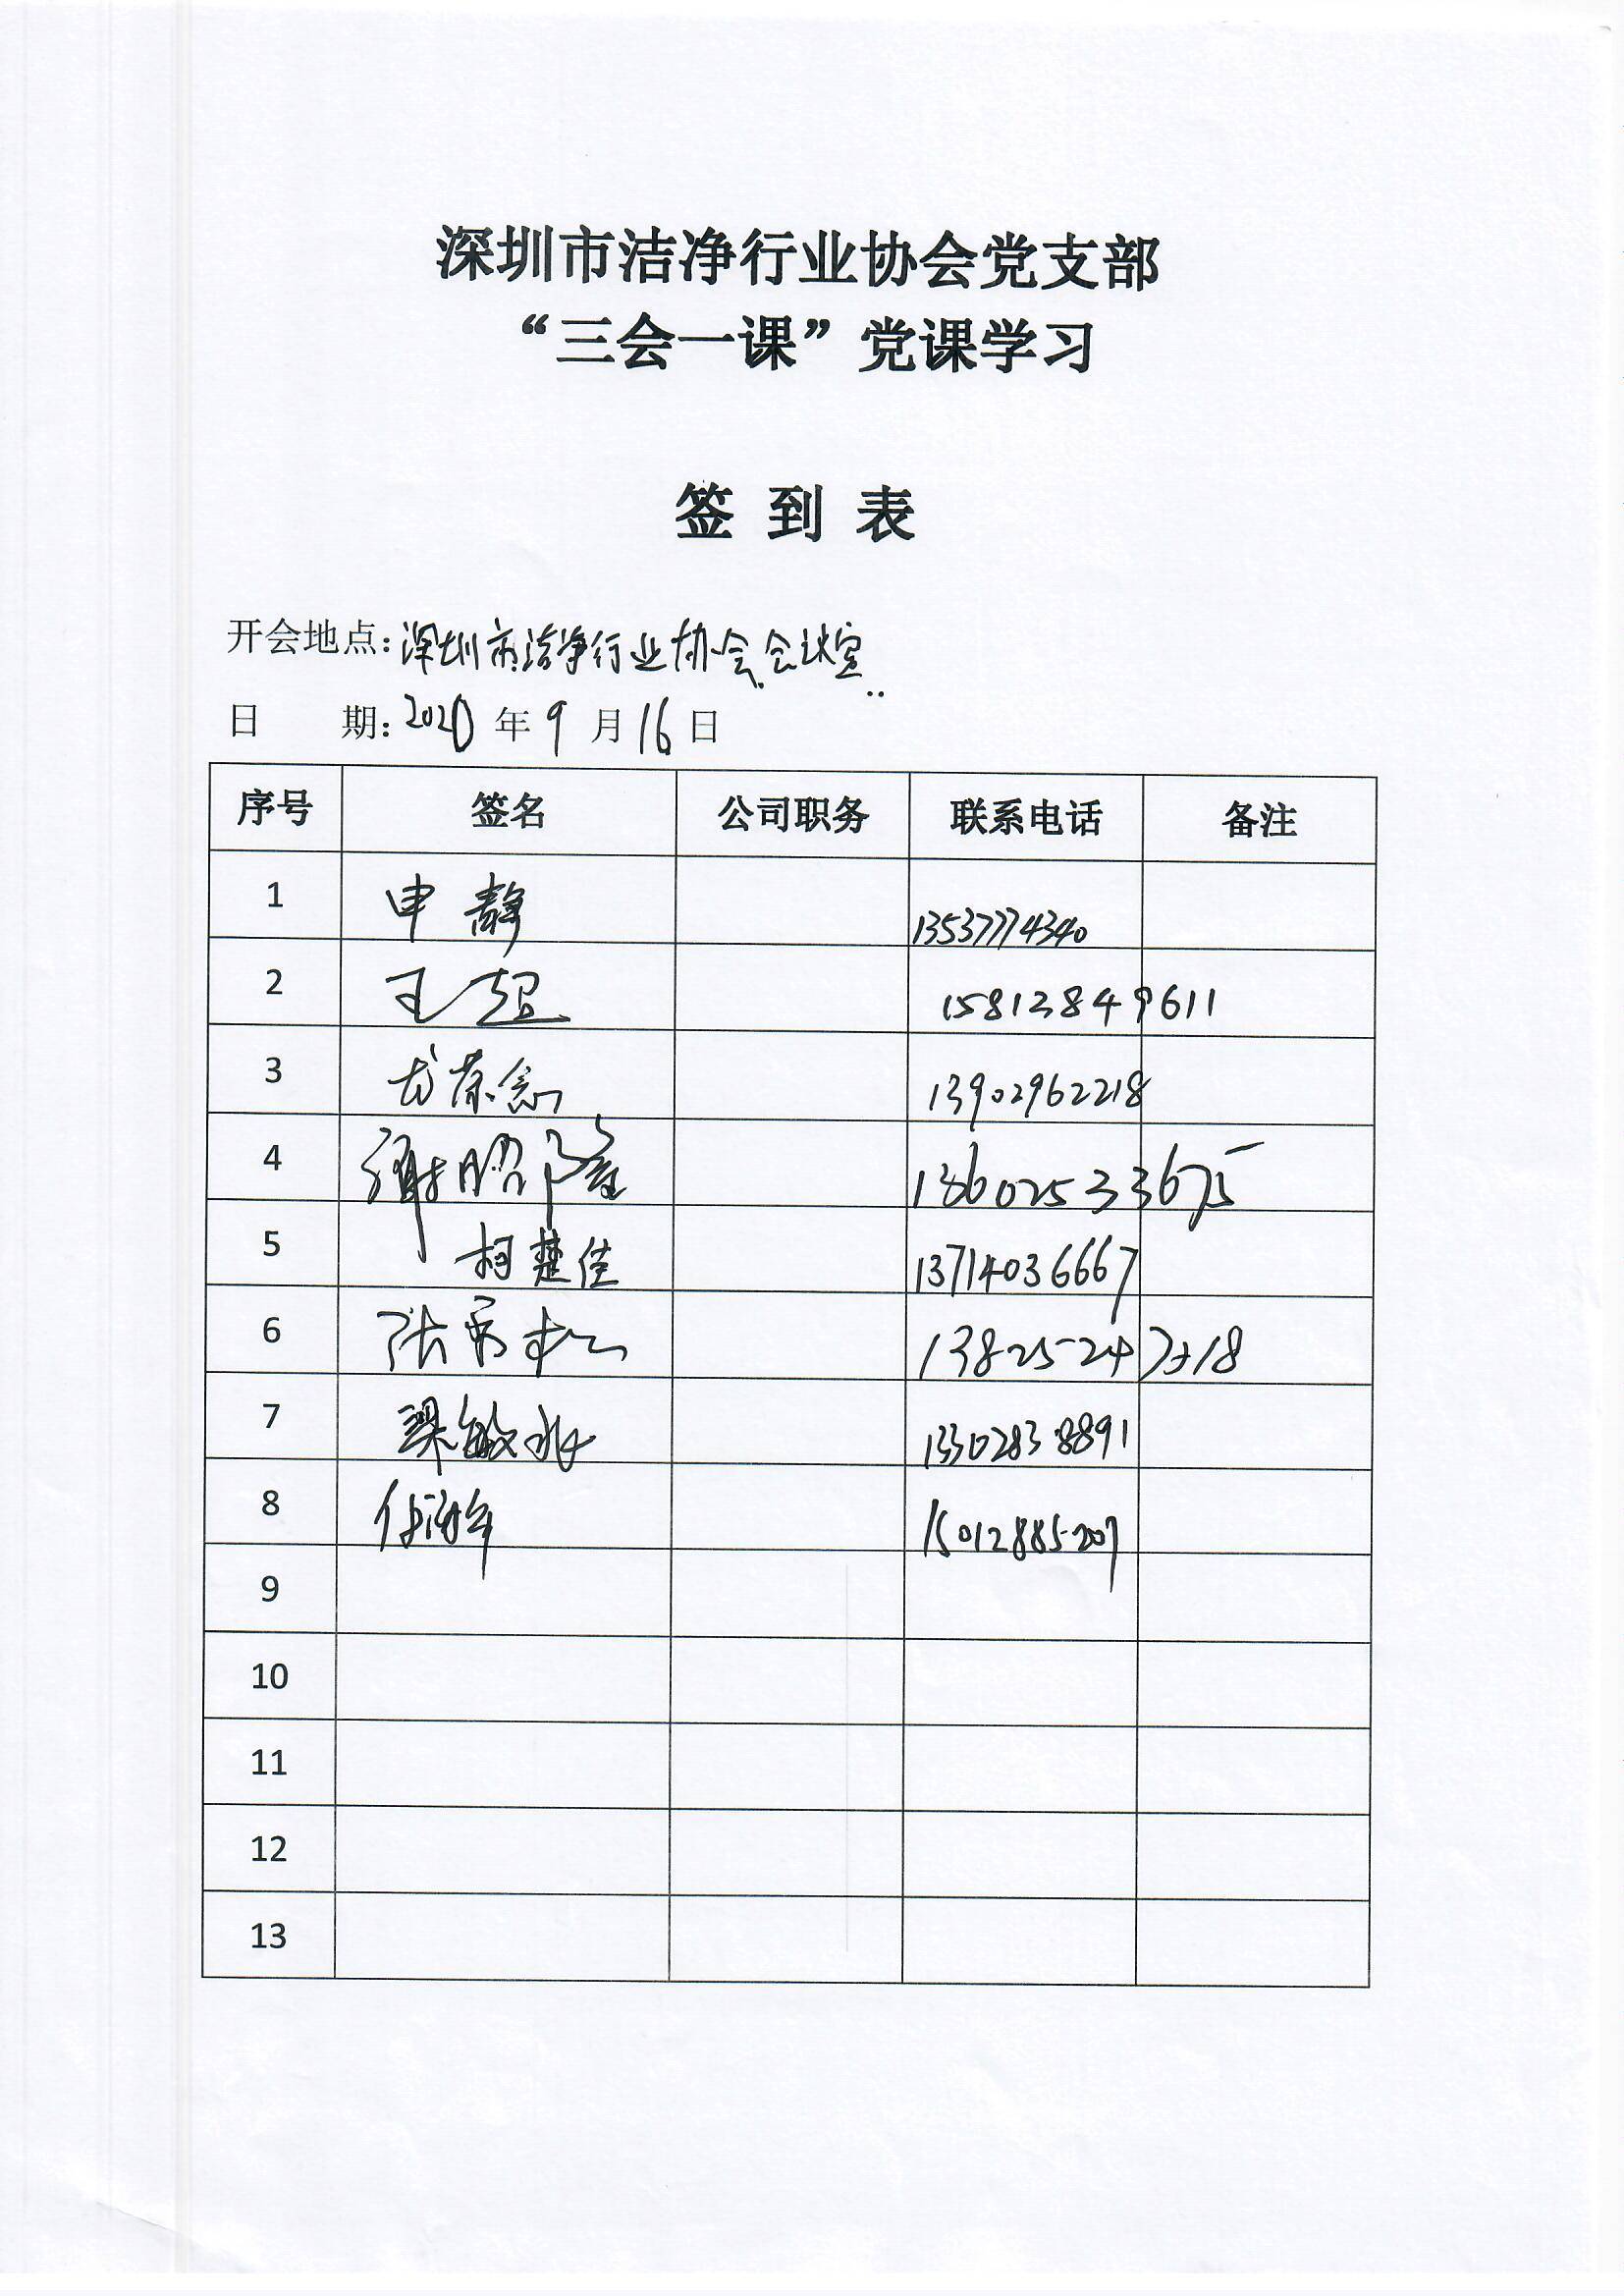 深圳市洁净行业协会党支部
“三会一课”党课学习
签到表
开会地点:深圳市洁净行业协会会议室
日 期:2020年9月16日
序号 签名 公司职务 联系电话 备注
1 申静 13537774340
2 王超 15812849611
3 13902962218
4 谢昭隆 13602533675
5 柯楚佳 13714036667
6 张
7 梁敏 13302838891
8 15012885207
9
10
11
12
13